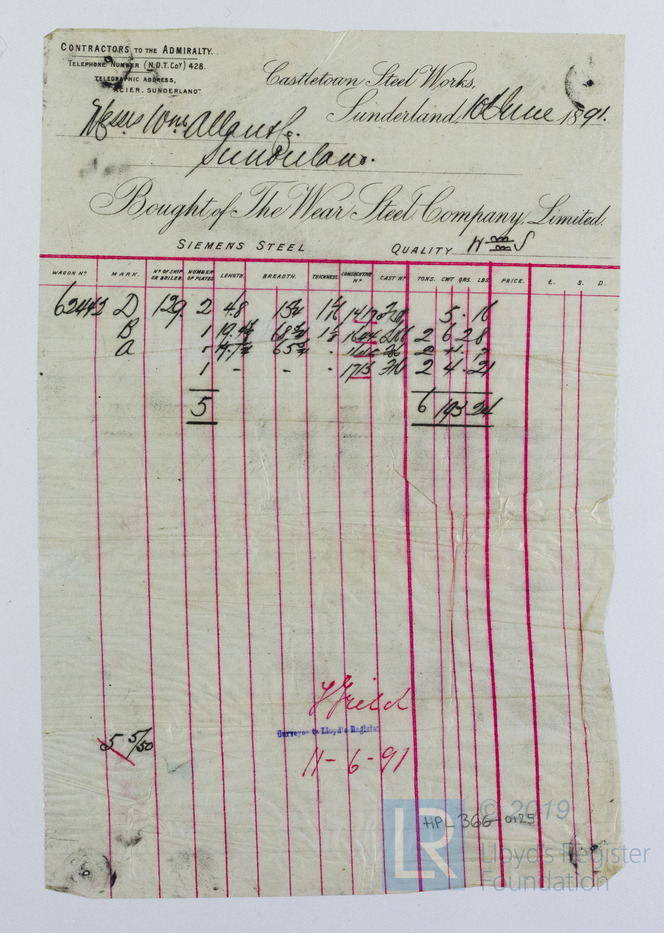 CONTRACTORS TO THE ADMIRALTY.
TELEPHONE NUMBER (N.D.T. COY) 428.
TELEGRAPHIC ADDRESS,
CIER, SUNDERLAND"
Castletown Steel Works,
Sunderland, 10th June 1891.
Messrs Wm Allan & Co.
Sunderland.
Bought of The Wear Steel Company, Limited.
SIEMENS STEEL QUALITY
WAGON No MARK. No OF SHIP OR BOILER. NUMBER OF PLATES. LENGTH. BREADTH. THICKNESS. CONSECUTIVE No CAST No TONS. CWT QRS. LBS PRICE. £. S. D.
62442 D 129 2 4.8 5 . 16
B 1 2 6 . 28
A
1 - - - 1713 2 4 . 21
5 6
Field
Surveyor to Lloyd's Register
11-6-91
5 5/50
HP_366-0125
LR
© 2019
Lloyd's Register
Foundation